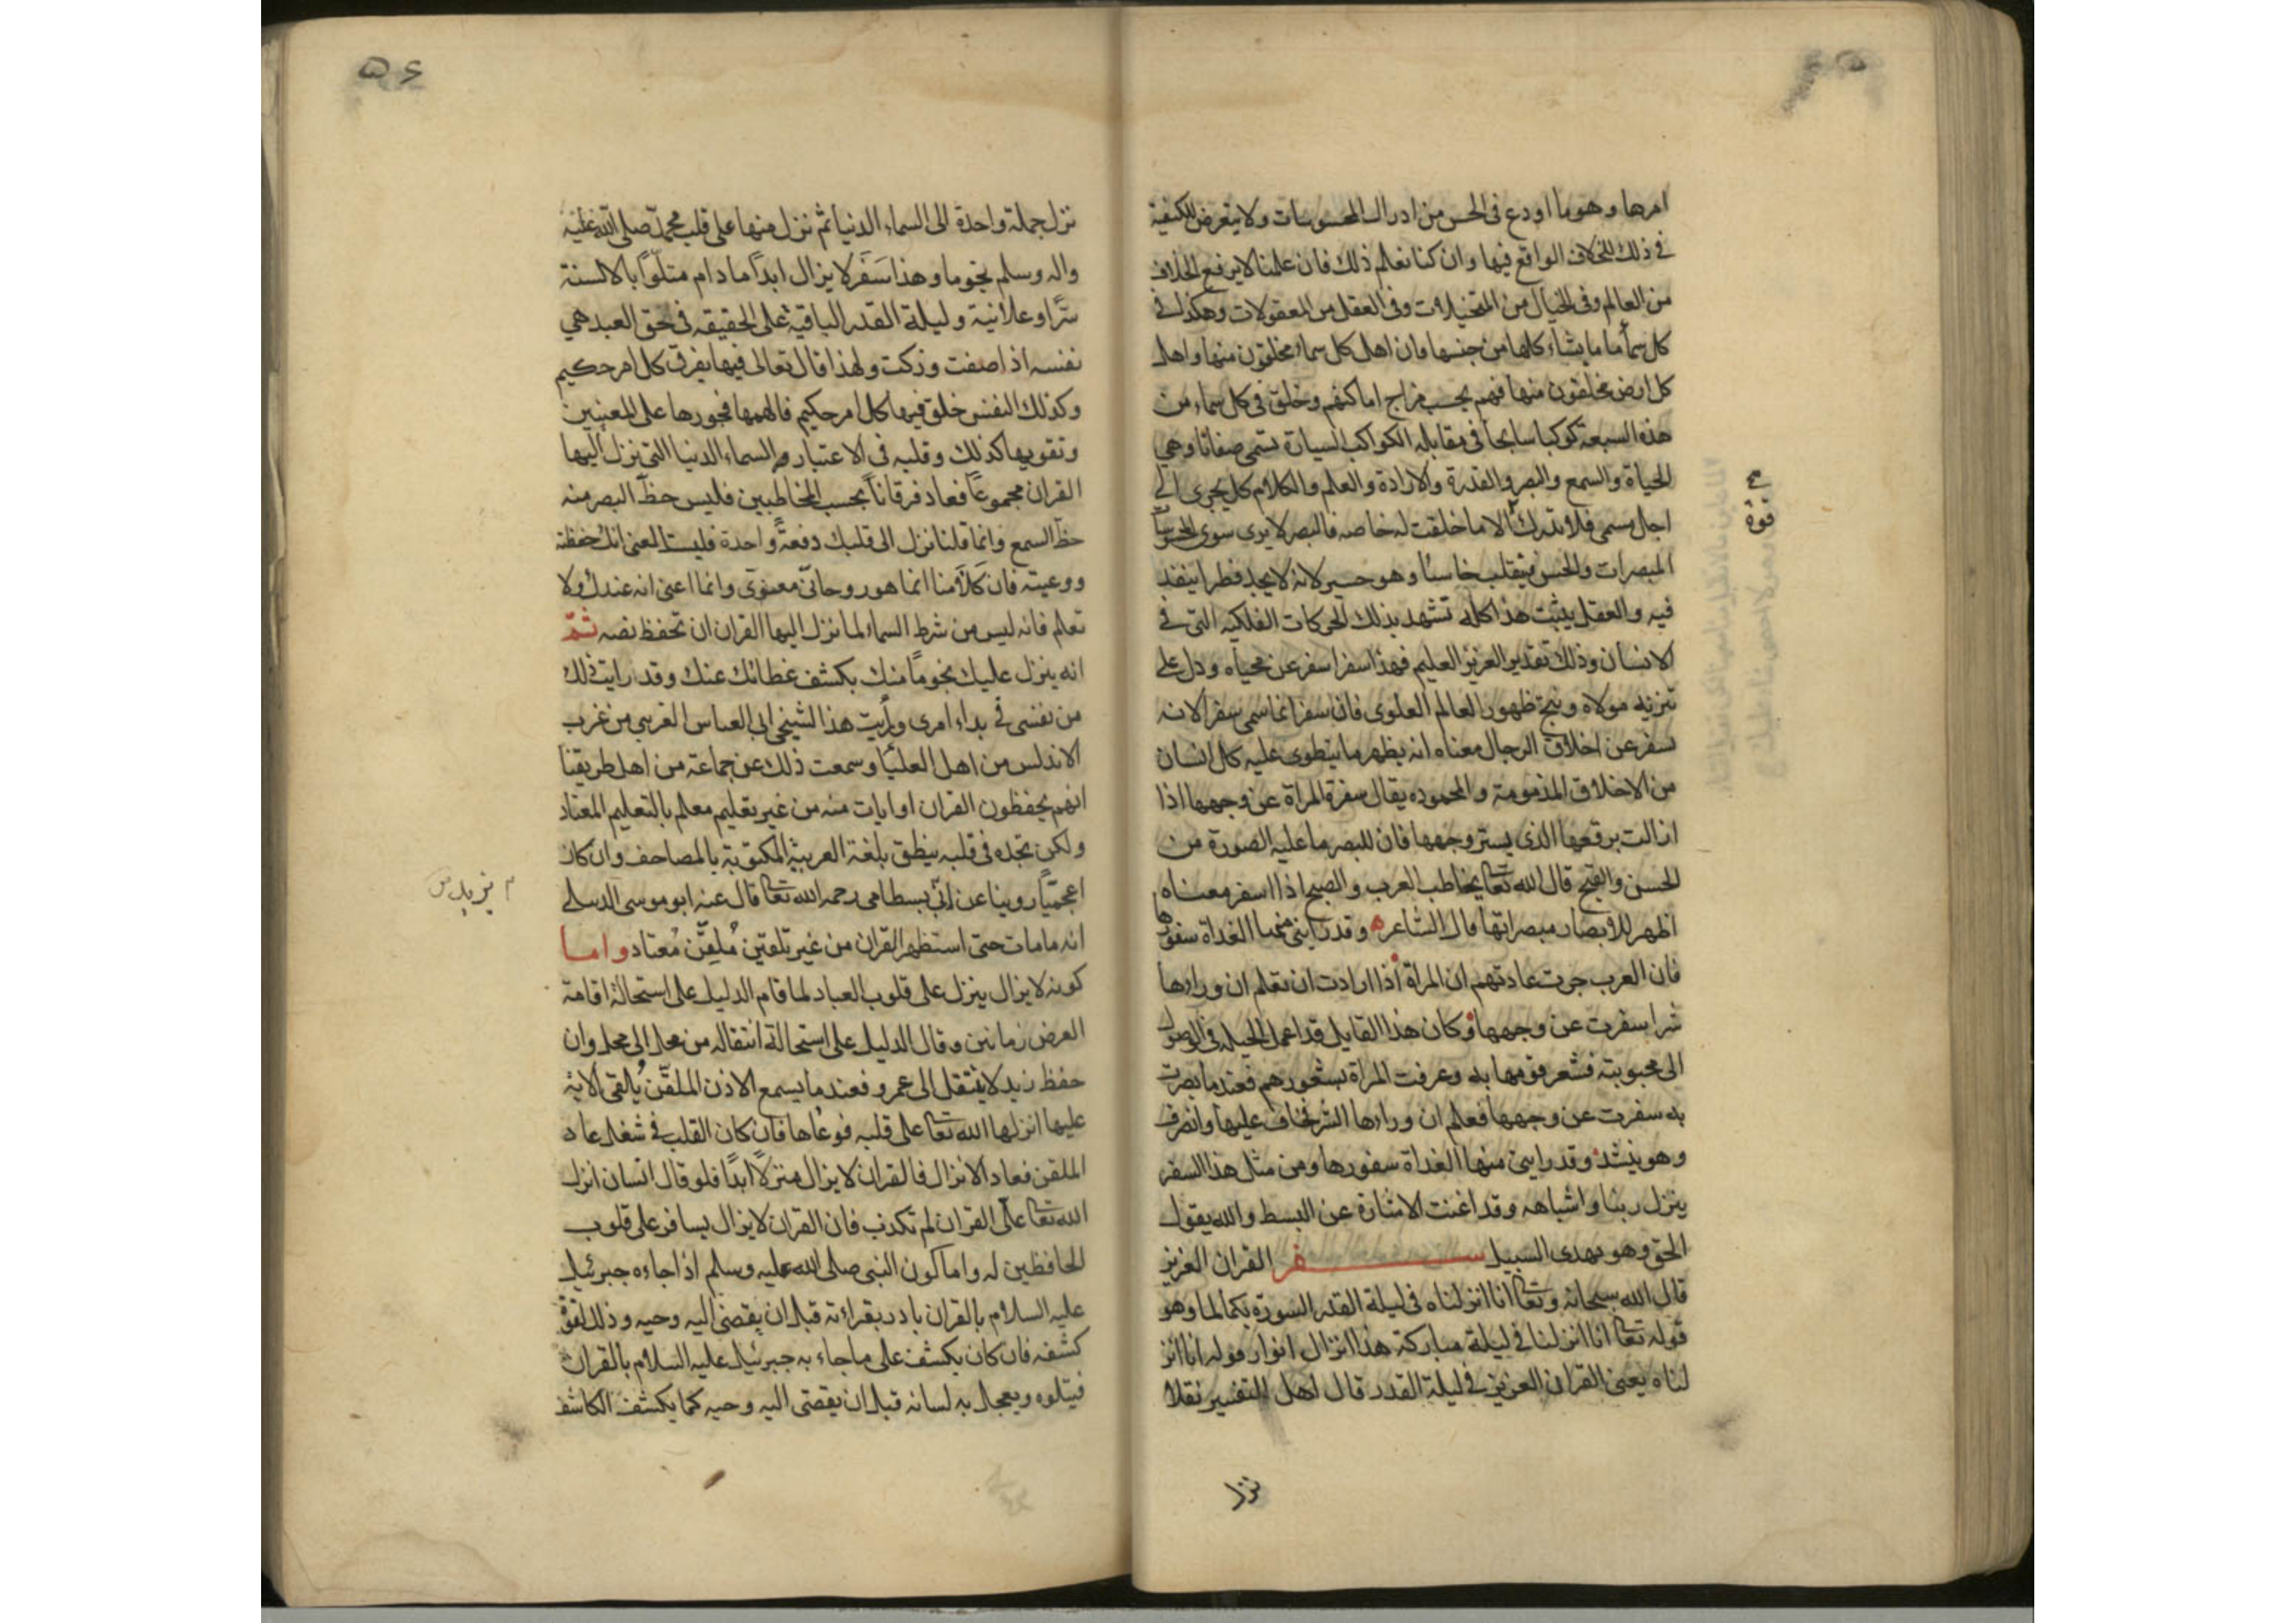 امرها وهو ما اودع فى الحس من ادراك المحسوسات ولا يتعرض للكيفية
فى ذلك للخلاف الواقع فيها وان كنا نعلم ذلك فان علمنا لا يرفع الخلاف
من العالم وفى الخيال من المتخيلات وفى العقل من المعقولات وهكذا فى
كل سما ما يشاء كلها من جنسها فان اهل كل سماء مخلقون منها واهل
كل ارض مخلقون منها فهم بحسب مزاج اماكنهم وخلق فى كل سماء من
هذه السبعة كوكبا سابحا فى مقابله الكواكب السيارة تسمى صفاتا وهى
الحياة والسمع والبصر والقدرة والارادة والعلم والكلام كل يجرى الى
قوة
اجل مسمى فلا تدرك الا ما خلقت له خاصه فالبصر لا يرى سوى المحسوسا
المبصرات والحس فينقلب خاسئا وهو حسير لانه لا يجد فطرا ينفذ
فيه والعقل يثبت هذا كله تشهد بذلك الحركات الفلكيه التى فى
الانسان وذلك تقدير العزيز العليم فهذا سفر اسفر عن محياه ودل على
تنزيه مولاه ونتج ظهور العالم العلوى فان سفرا نما سمى سفر الانه
يسفر عن اخلاق الرجال معناه انه يظهر ما ينطوى عليه كل انسان
من الاخلاق المذمومة والمحموده يقال سفرة المراة عن وجهها اذا
ازالت برقعها الذى يستر وجهها فان للبصر ما عليه الصورة من
الحسن والقبح قال الله تعا يخاطب العرب والصبح اذا اسفر معناه
اظهر للابصار مبصراتها قال الشاعر ه وقد رابنى منها الغداة سفورها
فان العرب جرت عادتهم ان المراة اذا ارادت ان تعلم ان وراءها
شرا سفرت عن وجهها وكان هذا القايل قد اعمل الحيله فى الوصول
الى محبوبته فشعر قومها به وعرفت المراة بشعورهم فعند ما بصرت
به سفرت عن وجهها فعلم ان وراءها الشر فخاف عليها وانصرف
وهو ينشد وقد رابنى منها الغداة سفورها ومن مثل هذا السفر
ينزل ربنا واشباهه وقد اغنت الاشارة عن البسط والله يقول
الحق وهو يهدى السبيل سفر القران العزيز
قال الله سبحانه وتعا انا انزلناه فى ليلة القدر السورة بكمالها وهو
قوله تعا انا انزلنا فى ليلة مباركة هذا انزال انوار قوله انا انز
لناه يعنى القران العزيز فى ليلة القدر قال اهل التفسير نقلا
نزل
۵۶
نزل جملة واحدة الى السماء الدنيا ثم نزل منها على قلب محمد صلى الله عليه
واله وسلم نجوما وهذا سفر لا يزال ابدا ما دام متلوا بالالسنة
سرا وعلانية وليلة القدر الباقية على الحقيقه فى حق العبد هى
نفسه اذا صفت وزكت ولهذا قال تعالى فيها يفرق كل امر حكيم
وكذلك النفس خلق فيها كل امر حكيم فالهمها فجورها على المعنيين
وتقويها كذلك وقلبه فى الاعتبار هو السماء الدنيا التى نزل اليها
القران مجموعا فعاد فرقانا بحسب المخاطبين فليس حظ البصر منه
حظ السمع وانما قلنا نزل الى قلبك دفعة واحدة فليست المعنى انك حفظته
ووعيته فان كلامنا انما هو روحانى معنوى وانما اعنى انه عندك ولا
تعلم فانه ليس من شرط السماء لما نزل اليها القران ان تحفظ نصه ثم
انه ينزل عليك نجوما منك بكشف غطائك عنك وقد رايت ذلك
من نفسى فى بداء امرى ورأيت هذا لشيخى ابى العباس الغربى من غرب
الاندلس من اهل العليا وسمعت ذلك عن جماعة من اهل طريقنا
انهم يحفظون القران او ايات منه من غير تعليم معلم بالتعليم المعتاد
ولكن تجده فى قلبه ينطق بلغة العربية المكتوبة بالمصاحف وان كان
اعجميا روينا عن ابى بسطامى رحمه الله تعا قال عنه ابو موسى الدبيلى
انه ما مات حتى استظهر القران من غير تلقين ملقن معتاد واما
كونه لا يزال ينزل على قلوب العباد لما قام الدليل على استحالة اقامة
العرض زمانين وقال الدليل على استحالة انتقاله من محل الى محل وان
حفظ زيد لا ينتقل الى عمرو فعند ما يسمع الاذن الملقن يالقى الاية
عليها انزلها الله تعا على قلبه فوعاها فان كان القلب فى شغل عاد
الملقن فعاد الانزال فالقران لا يزال منزلا ابدا فلو قال انسان انزل
الله تعا على القران لم تكذب فان القران لا يزال يسافر على قلوب
الحافظين له واما كون النبى صلى الله عليه وسلم اذا جاءه جبرئيل
عليه السلام بالقران بادر بقراءته قبل ان يقضى اليه وحيه وذلك لقوة
كشفه فان كان يكشف على ما جاء به جبرئيل عليه السلام بالقران
فيتلوه ويعجل به لسانه قبل ان يقضى اليه وحيه كما يكشف الكاشف